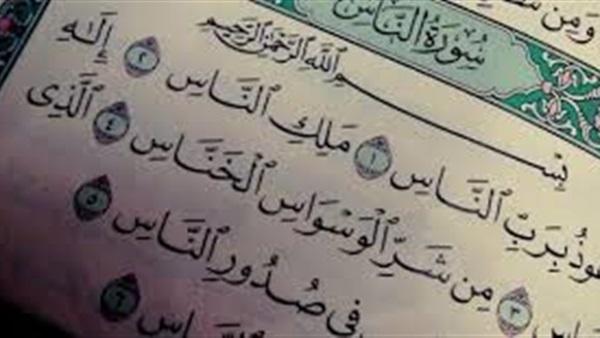 وَمِن
سُورَةُ النَّاسِ
بِسْمِ ٱللَّهِ ٱلرَّحْمَٰنِ ٱلرَّحِيمِ
بِرَبِّ ٱلنَّاسِ ١ مَلِكِ ٱلنَّاسِ ٢ إِلَٰهِ
اسِ ٣ مِن شَرِّ ٱلْوَسْوَاسِ ٱلْخَنَّاسِ ٤ ٱلَّذِى
فِى صُدُورِ ٱلنَّاسِ ٥
٦